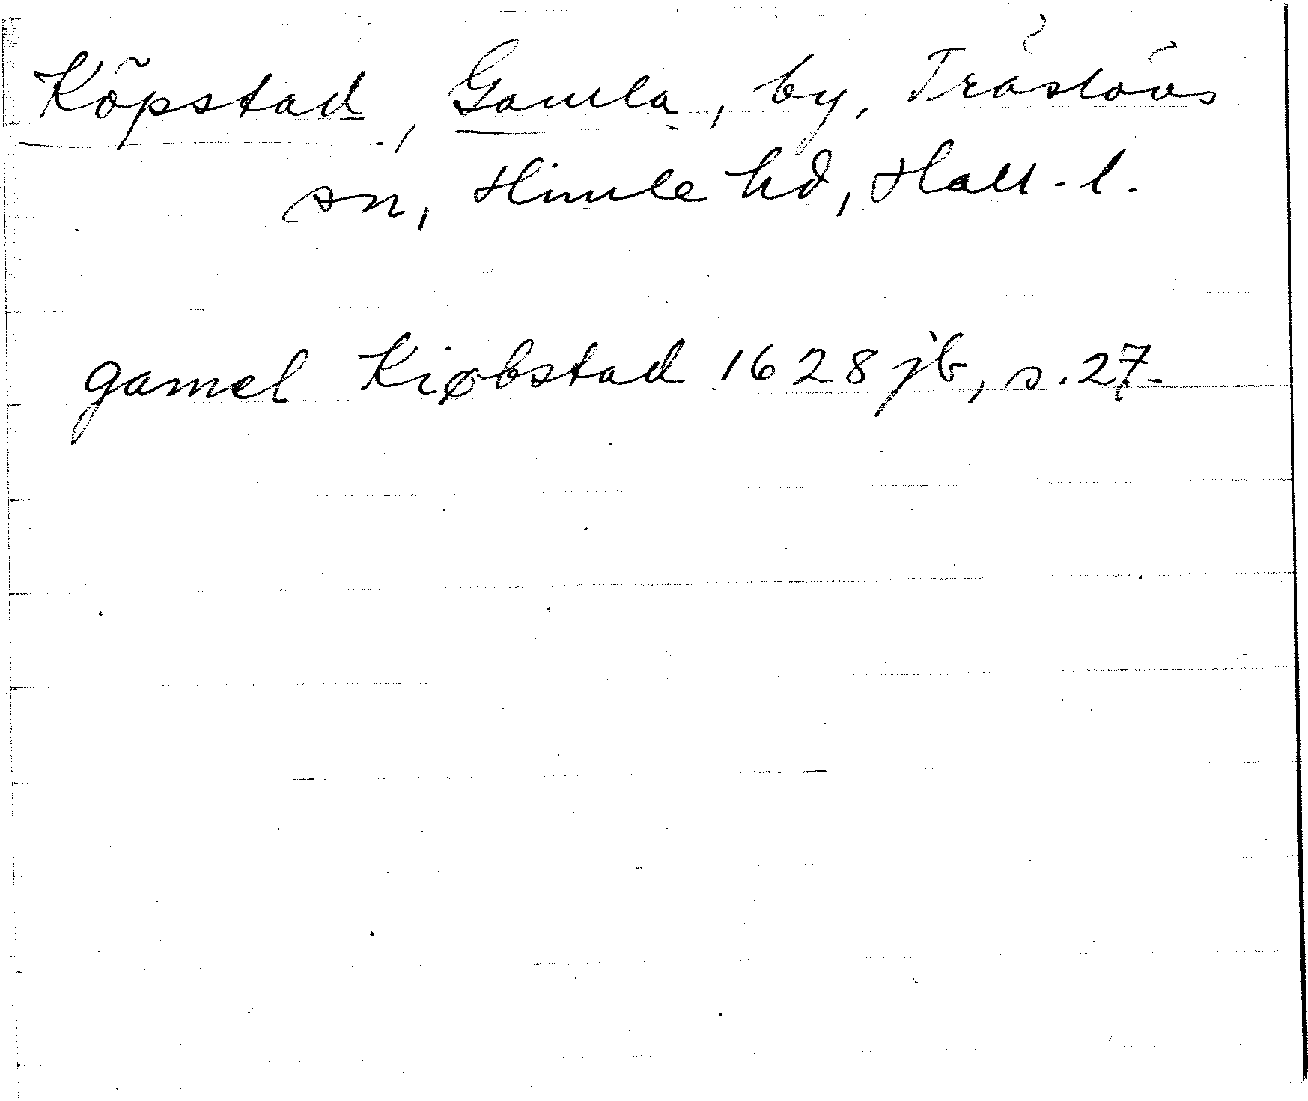 Köpstad, Gamla, by, Träslövs
sn, Himle hd, Hall. l.
gamel Kiøbstad 1628 jb, s. 27.